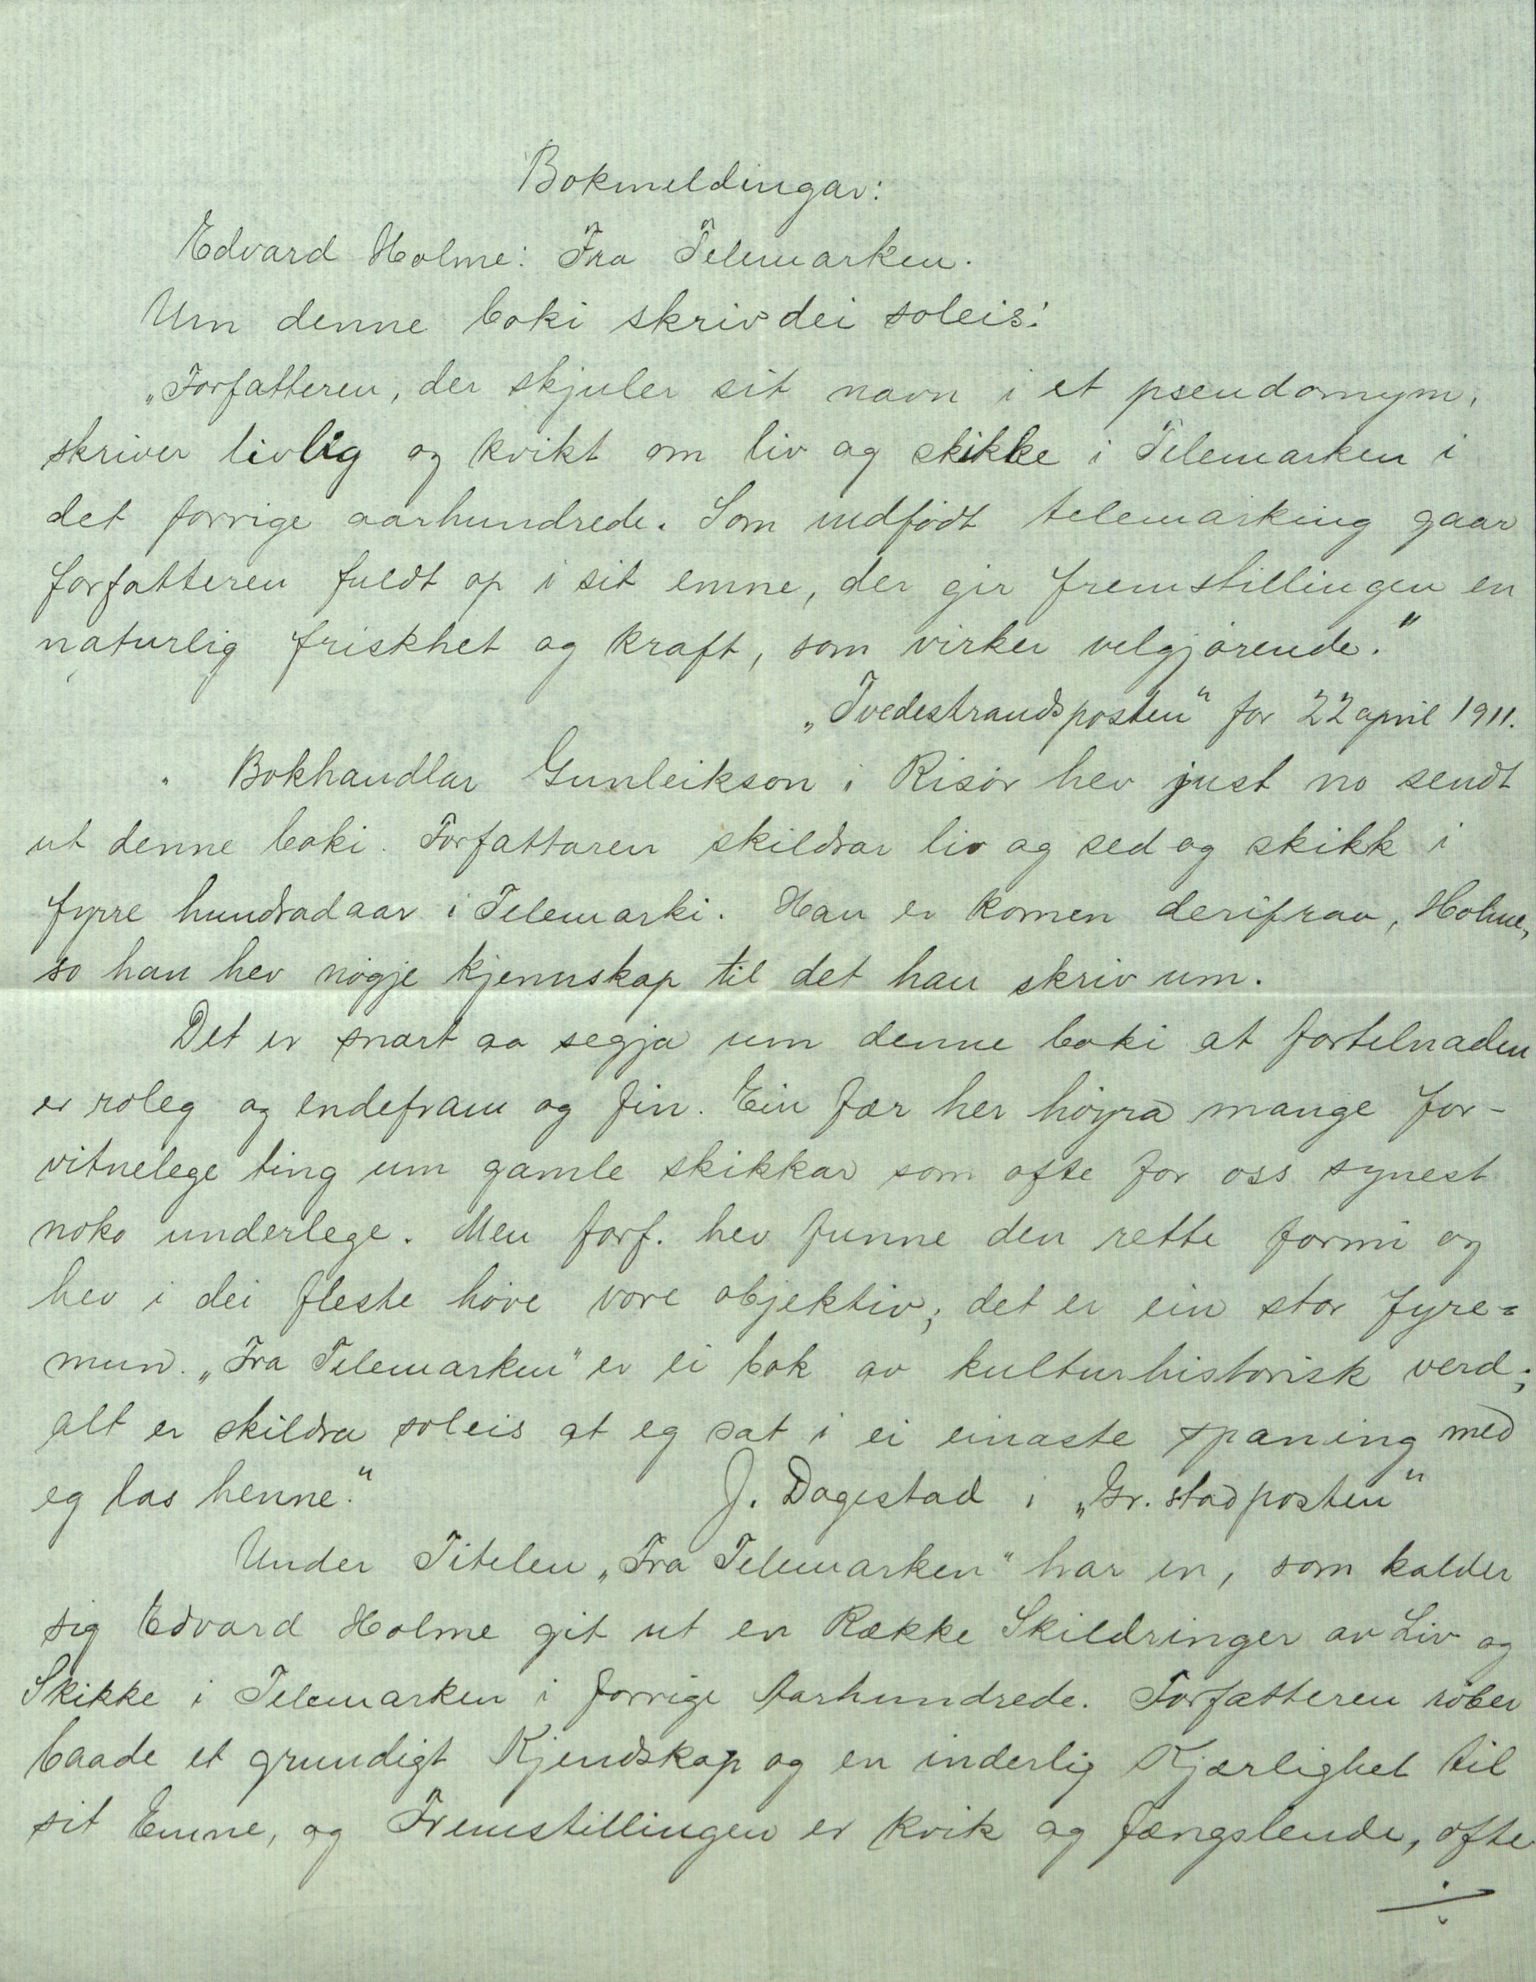 Bokmeldingar:
Edvard Holme: Fra Telemarken.
Um denne boki skriv dei soleis:
„Forfatteren, der skjuler sit navn i et pseudomym,
skriver livlig og kvikt om liv og skikke i Telemarken i
det forrige aarhundrede. Som indfødt telemarking gaar
forfatteren fuldt op i sit emne, der gir fremstillingen en
naturlig friskhet og kraft, som virker velgjørende."
„Tvedestrandsposten" for 22 april 1911.
„ Bokhandlar Gunleikson i Risør hev just no sendt
ut denne boki. Forfattaren skildrar liv og sed og skikk i
fyrre hundradaar i Telemarki. Han er komen derifraa, Holme,
so han hev nøgje kjennskap til det han skriv um.
Det er snart aa segja um denne boki at forteljnaden
er roleg og endefram og fin. Ein fær her høyra mange for-
vitnelege ting um gamle skikkar som ofte for oss synest
noko underlege. Men forf. hev funne den rette formi og
hev i dei fleste høve vore objektiv; det er ein stor fyre=
mun. „Fra Telemarken" er ei bok av kulturhistorisk verd;
alt er skildra soleis at eg sat i ei einaste spaning med
eg las henne."   J. Dagestad i „Gr.stadposten"
Under Titelen „Fra Telemarken" har en, som kalder
sig Edvard Holme git ut en Række Skildringer av Liv og
Skikke i Telemarken i forrige Aarhundrede. Forfatteren røber
baade et grundigt Kjendskap og en inderlig Kjærlighet til
sit Emne, og Fremstillingen er kvik og fængslende, ofte
÷